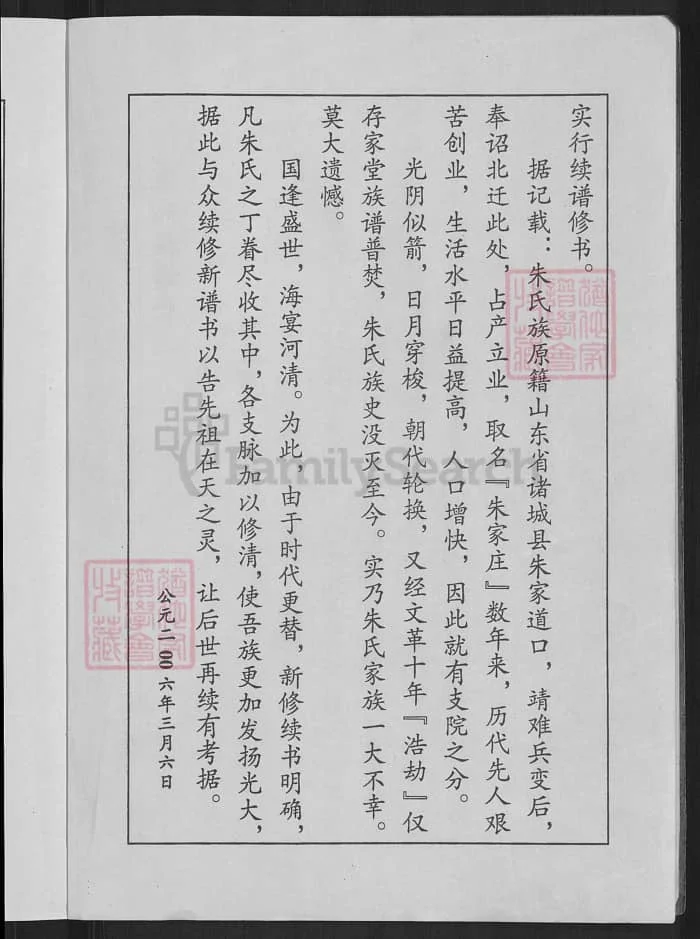 实行续谱修书。
据记载：朱氏族原籍山东省诸城县朱家道口，靖难兵变后，
奉诏北迁此处，占产立业，取名『朱家庄』数年来，历代先人艰
苦创业，生活水平日益提高，人口增快，因此就有支院之分。
光阴似箭，日月穿梭，朝代轮换，又经文革十年『浩劫』仅
存家堂族谱普焚，朱氏族史没灭至今。实乃朱氏家族一大不幸。
莫大遗憾。
国逢盛世，海宴河清。为此，由于时代更替，新修续书明确，
凡朱氏之丁眷尽收其中，各支脉加以修清，使吾族更加发扬光大，
据此与众续修新谱书以告先祖在天之灵，让后世再续有考据。
公元二00六年三月六日
FamilySearch